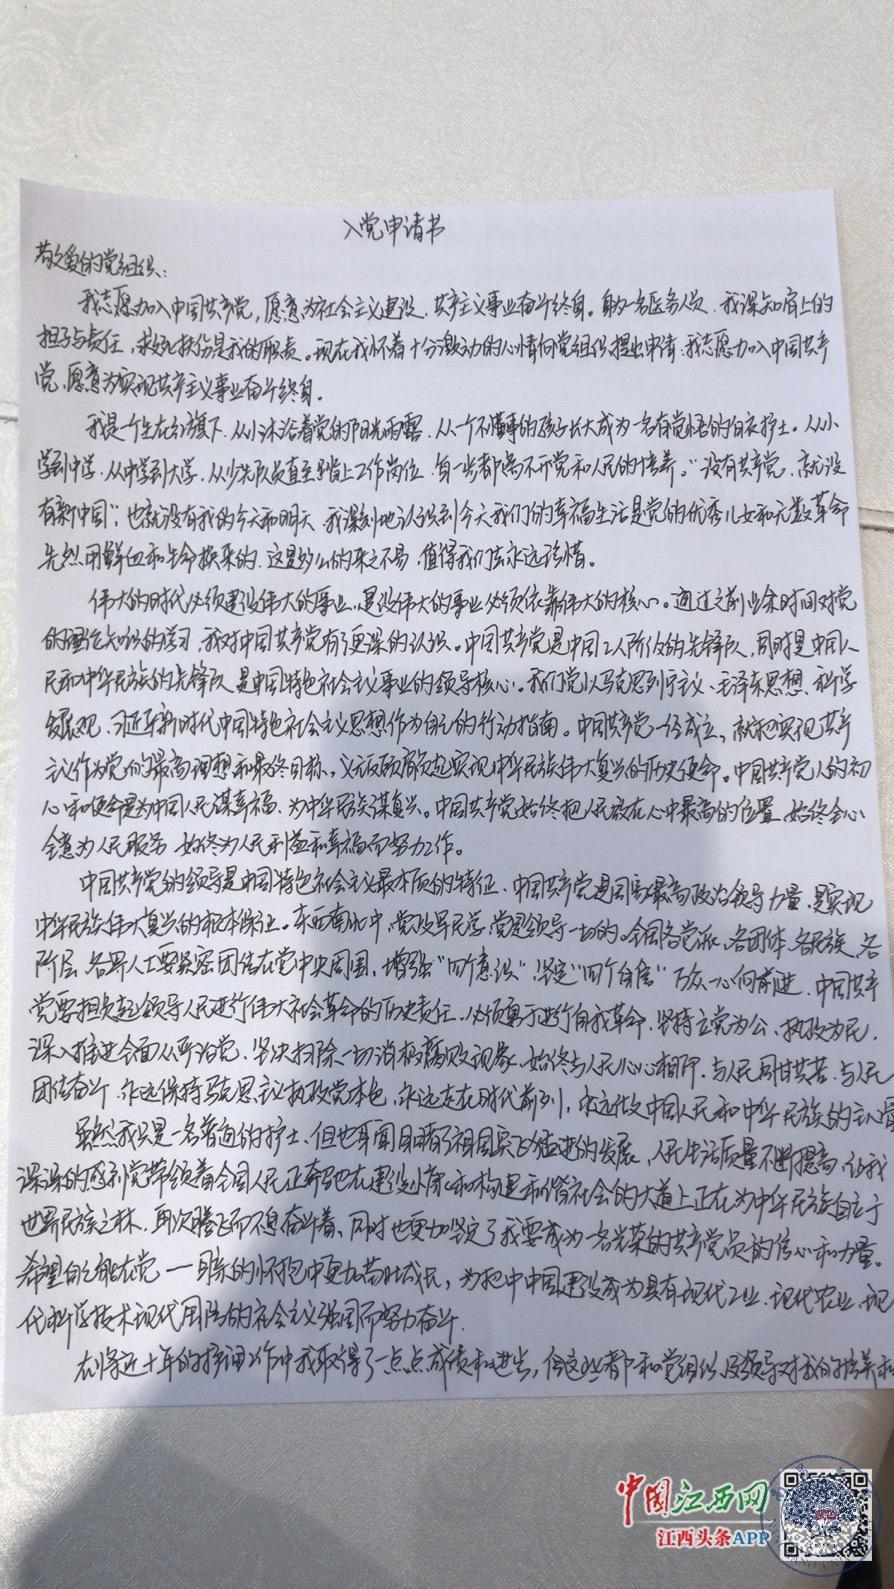 入党申请书
敬爱的党组织：
我志愿加入中国共产党，愿意为社会主义建设、共产主义事业奋斗终身。身为一名医务人员，我深知肩上的
担子与责任，救死扶伤是我的职责。现在我怀着十分激动的心情向党组织提出申请：我志愿加入中国共产
党，愿意为实现共产主义事业奋斗终身。
我是一个生在红旗下，从小沐浴着党的阳光雨露，从一个不懂事的孩子长大成为一名有觉悟的白衣护士。从小
学到中学，从中学到大学，从少先队员直至踏上工作岗位，每一步都离不开党和人民的培养。“没有共产党，就没
有新中国”，也就没有我的今天和明天，我深刻地认识到今天我们的幸福生活是党的优秀儿女和无数革命
先烈用鲜血和生命换来的，这是多么的来之不易，值得我们去永远珍惜。
伟大的时代必须建设伟大的事业，建设伟大的事业必须依靠伟大的核心。通过之前业余时间对党
的理论知识的学习，我对中国共产党有了更深的认识。中国共产党是中国工人阶级的先锋队，同时是中国人
民和中华民族的先锋队，是中国特色社会主义事业的领导核心。我们党以马克思列宁主义、毛泽东思想、科学
发展观、习近平新时代中国特色社会主义思想作为自己的行动指南。中国共产党一经成立，就把实现共产
主义作为党的最高理想和最终目标，义无反顾肩负起实现中华民族伟大复兴的历史使命。中国共产党人的初
心和使命是为中国人民谋幸福，为中华民族谋复兴。中国共产党始终把人民放在心中最高的位置，始终全心
全意为人民服务，始终为人民利益和幸福而努力工作。
中国共产党的领导是中国特色社会主义最本质的特征，中国共产党是国家最高政治领导力量，是实现
中华民族伟大复兴的根本保证。东西南北中，党政军民学，党是领导一切的。全国各党派、各团体、各民族、各
阶层、各界人士要紧密团结在党中央周围，增强“四个意识”，坚定“四个自信”，万众一心向前进，中国共产
党要担负起领导人民进行伟大社会革命的历史责任，必须勇于进行自我革命，坚持立党为公、执政为民，
深入推进全面从严治党，坚决扫除一切消极腐败现象，始终与人民心心相印，与人民同甘共苦，与人民
团结奋斗，永远保持马克思主义执政党本色，永远走在时代前列，永远做中国人民和中华民族的主心骨
虽然我只是一名普通的护士，但也耳闻目睹了祖国突飞猛进的发展，人民生活质量不断提高，让我
深深的感到党带领着全国人民正奔驰在建设小康和构建和谐社会的大道上正在为中华民族自立于
世界民族之林，再次腾飞而不息奋斗着，同时也更加坚定了我要成为一名光荣的共产党员的信心和力量。
希望自己能在党一一母亲的怀抱中更加茁壮成长，为把中中国建设成为具有现代工业、现代农业、现
代科学技术现代国防的社会主义强国而努力奋斗，
在将近十年的护理工作中我取得了一点点成绩和进步，但这些都和党组织及领导对我的培养和
中国江西网
江西头条APP